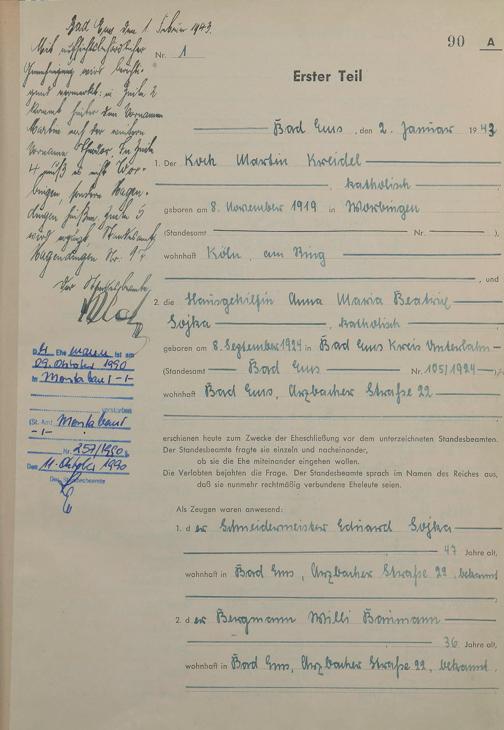 Bad Ems, den 1. Februar 1943.
Mit aufsichtsbehördlicher
Genehmigung wird berichti-
gend vermerkt: in Zeile 2
kommt hinter den Vornamen
Martin noch der weitere
Vorname Theodor. In Zeile
4 muß es nicht Wor-
bingen, sondern Hagen-
dingen heißen. Zeile 5
wird ergänzt, Standesamt
Hagendingen Nr.
Der Standesbeamte
90 A
Nr. 1
Erster Teil
Bad Ems, den 2. Januar 1943
1. Der Koch Martin Kreidel
, katholisch
geboren am 8. November 1919 in Worbingen
(Standesamt Nr. ),
wohnhaft Köln, am Ring
, und
2. die Hausgehilfin Anna Maria Beatrix
Sojka, katholisch
geboren am 8. September 1924 in Bad Ems Kreis Unterlahn
(Standesamt Bad Ems Nr. 105/1924
wohnhaft Bad Ems, Arzbacher Straße 22
D Ehe ist am
09. Oktober 1990
in Montabaur
verstorben
(St. Amt Montabaur
Nr. 257/1990)
Den 11. Oktober 1990
Der Standesbeamte
erschienen heute zum Zwecke der Eheschließung vor dem unterzeichneten Standesbeamten.
Der Standesbeamte fragte sie einzeln und nacheinander,
ob sie die Ehe miteinander eingehen wollen.
Die Verlobten bejahten die Frage. Der Standesbeamte sprach im Namen des Reiches aus,
daß sie nunmehr rechtmäßig verbundene Eheleute seien.
Als Zeugen waren anwesend:
1. d er Schneidermeister Eduard Sojka
47 Jahre alt,
wohnhaft in Bad Ems, Arzbacher Straße 22, bekannt
2. d er Bergmann Willi Baumann
36 Jahre alt,
wohnhaft in Bad Ems, Arzbacher Straße 22, bekannt.